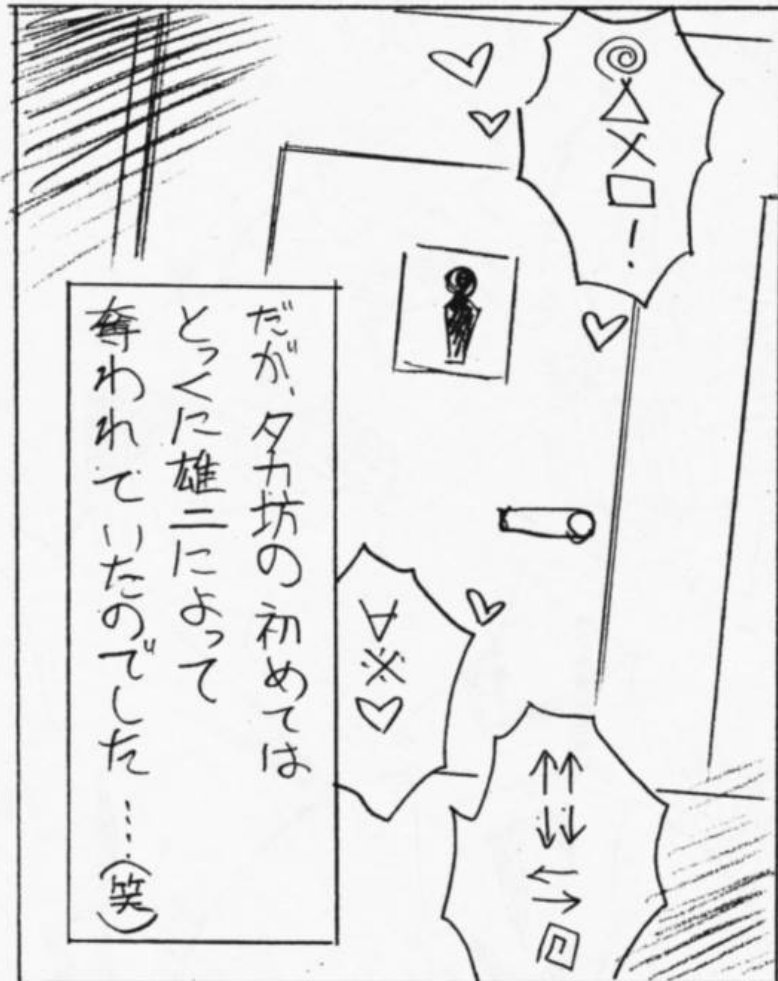 ◎△×□!
だが、タカ坊の初めては
とっくに雄二によって
奪われていたのでした…(笑)
∀※♡
↑↑↓↓←→回